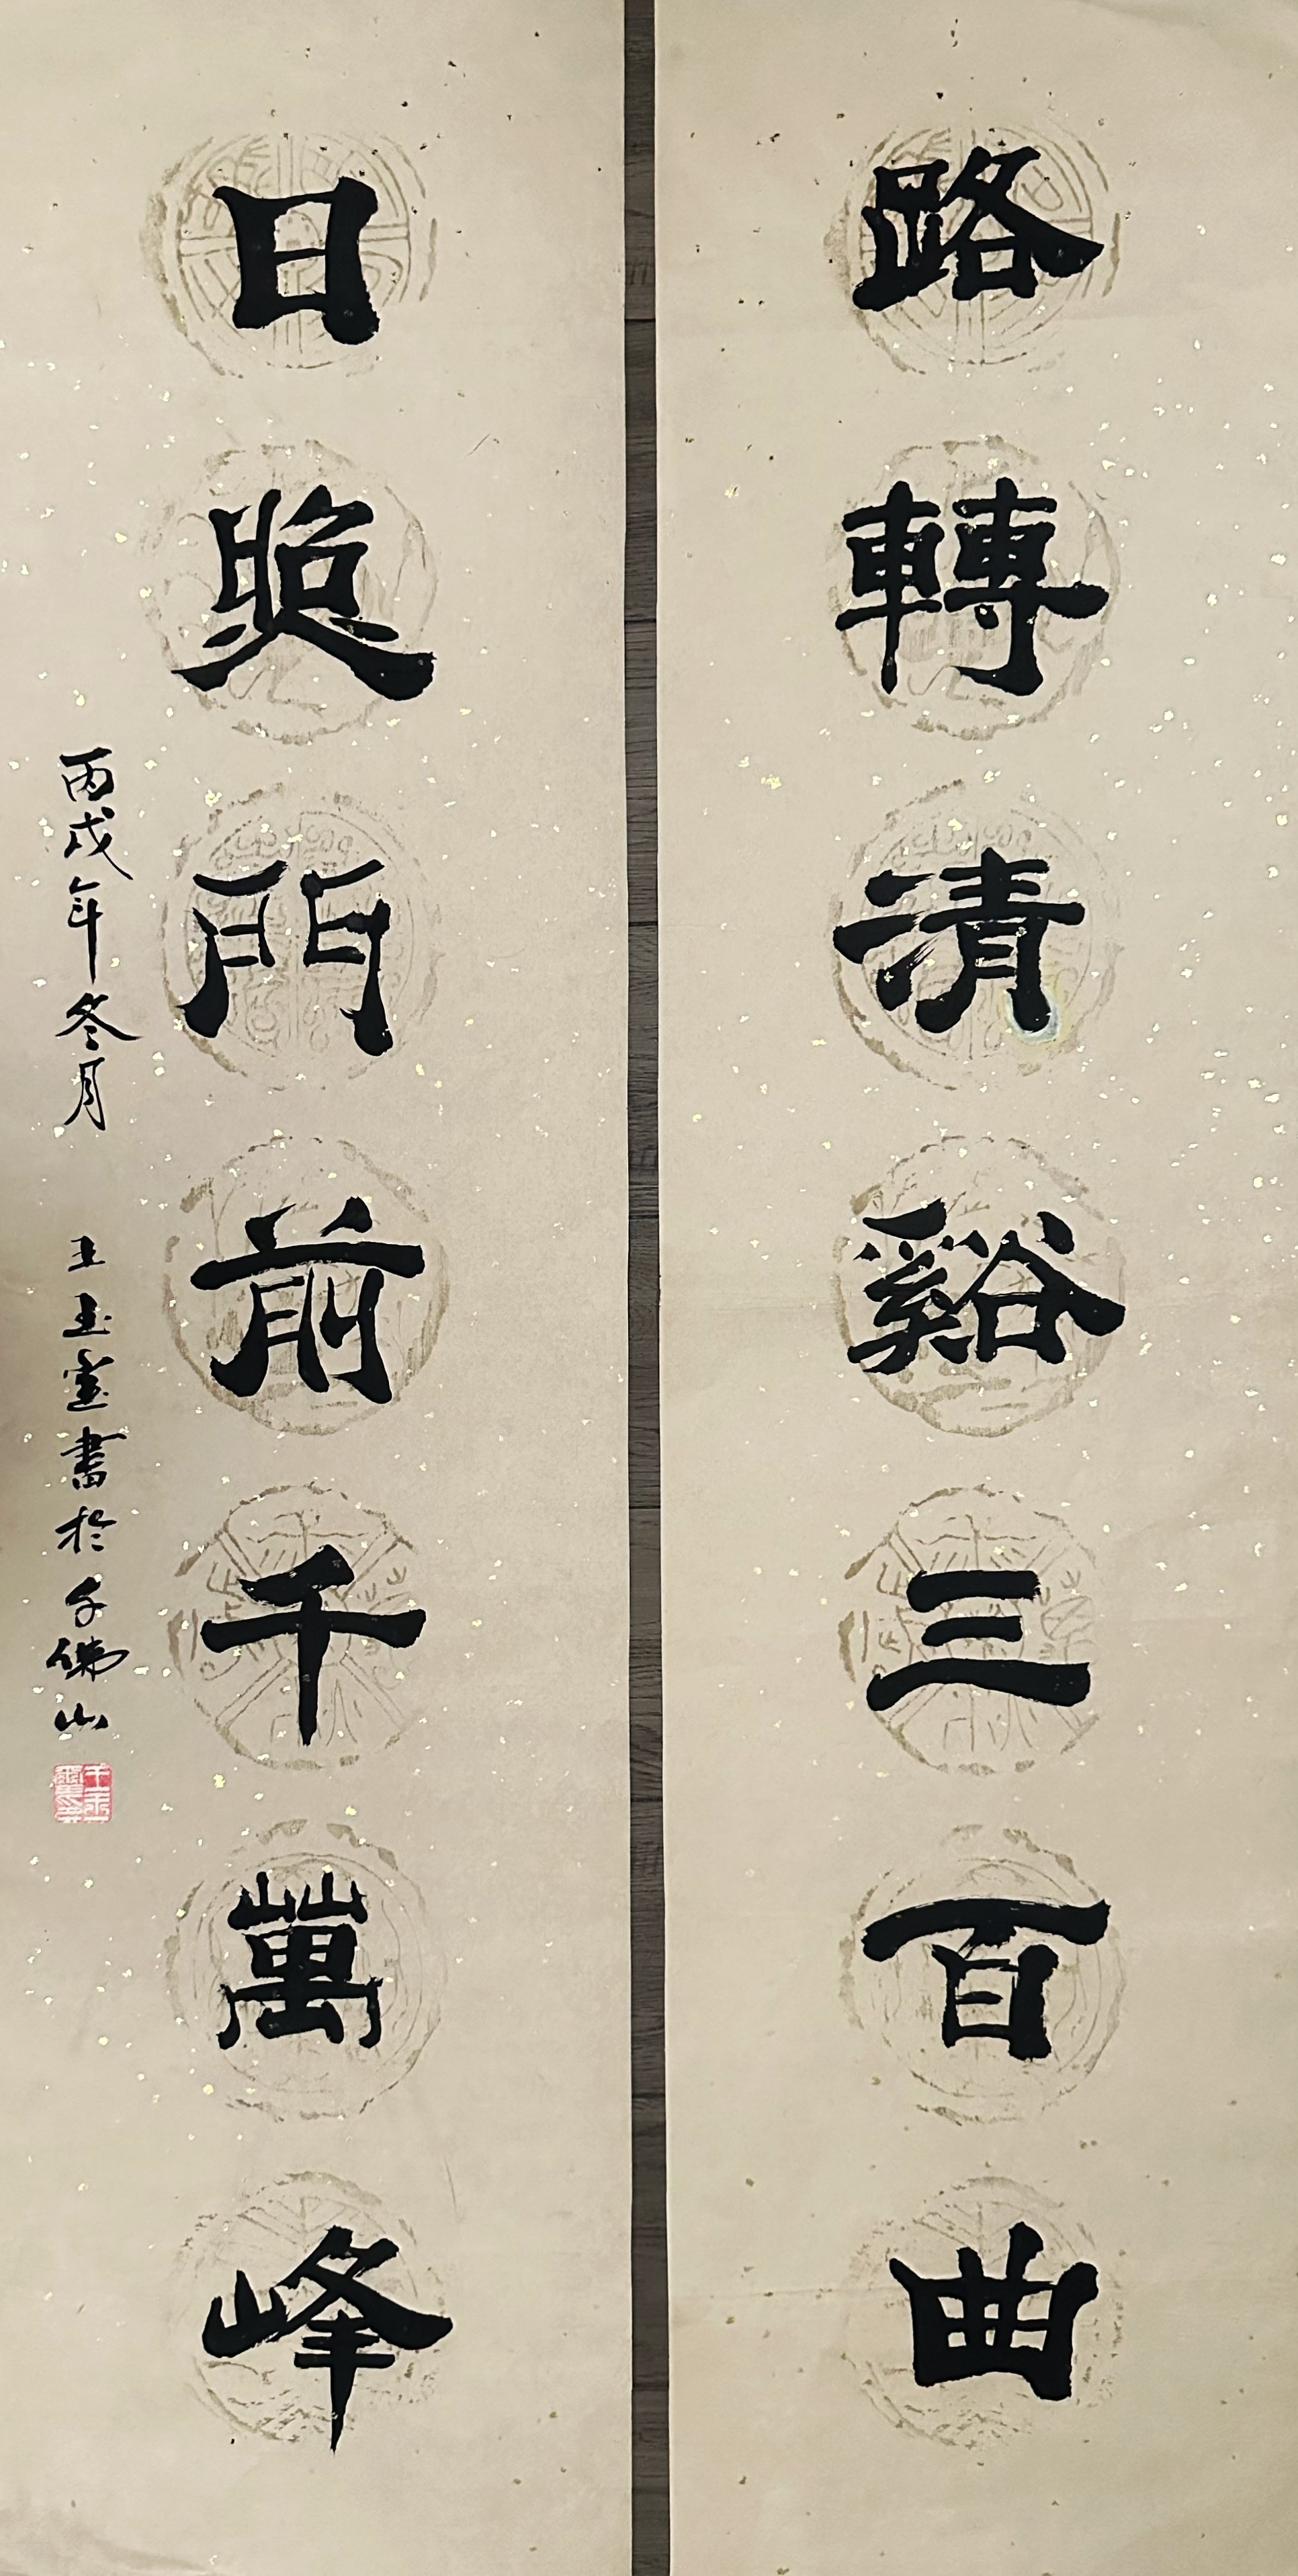 路轉清谿三百曲
日照門前千萬峰
丙戌年冬月 王玉璽書於千佛山